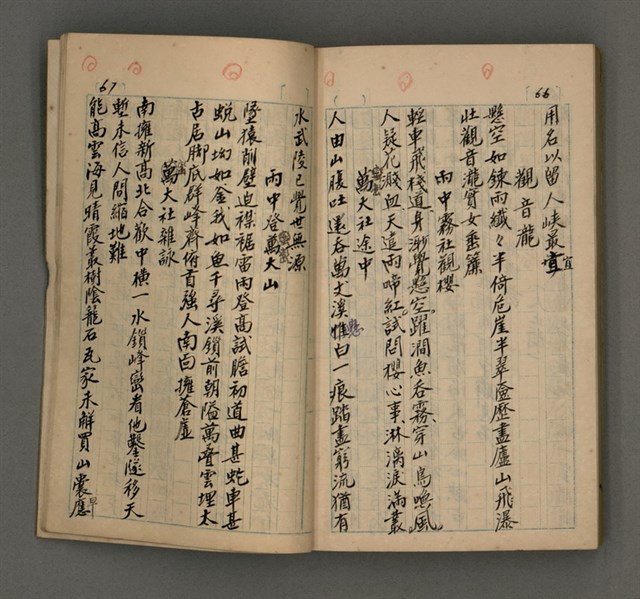 66
用名以留人峽最宜
宜
觀音瀧
懸空如鍊雨纖々半倚危崖半翠奩歷盡廬山飛瀑
壯觀音瀧實女垂簾
雨中霧社觀櫻
輕車飛棧道身渺覺懸空躍澗魚吞霧穿山鳥喚風
人疑花濺血天遣雨啼紅試問櫻心事淋漓淚滿叢
萬大社途中
人由山腹吐還吞萬丈溪懸白一痕踏盡窮流猶有
67
水武陵已覺世無源
雨中登萬大山
墜猿削壁迫襟裾雷雨登高試膽初道曲甚蛇車甚
蛻山坳如釜我如魚千尋溪鎖前朝隘萬疊雲埋太
古居脚底群峰齊俯首強人南向擁蒼虛
萬大社雜詠
南擁新高北合歡中橫一水鎖峰巒看他鑿隧移天
塹未信人間縮地難
能高雲海見晴霞叢樹陰籠石瓦家未解買山囊應
早